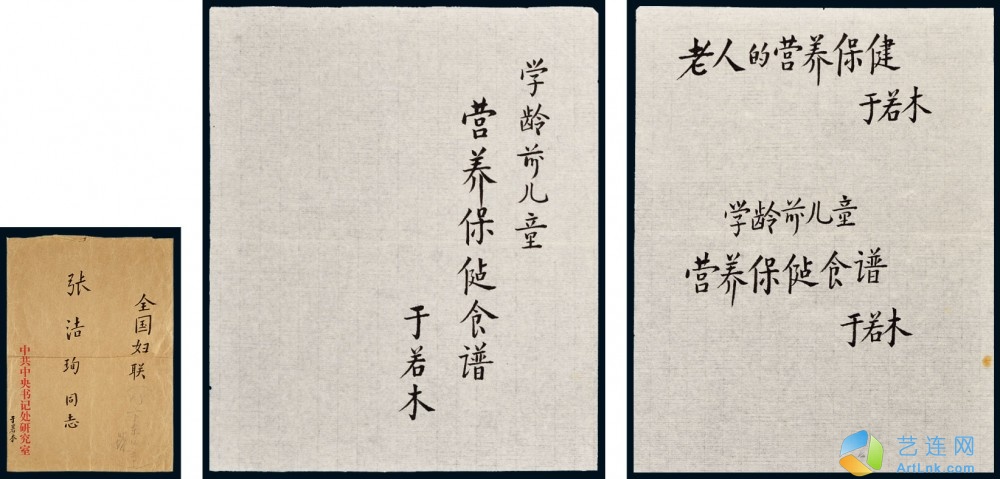 全国妇联
张洁珣同志
中共中央书记处研究室
于若木
学龄前儿童
营养保健食谱
于若木
老人的营养保健
于若木
学龄前儿童
营养保健食谱
于若木
艺连网
ArtLnk.com